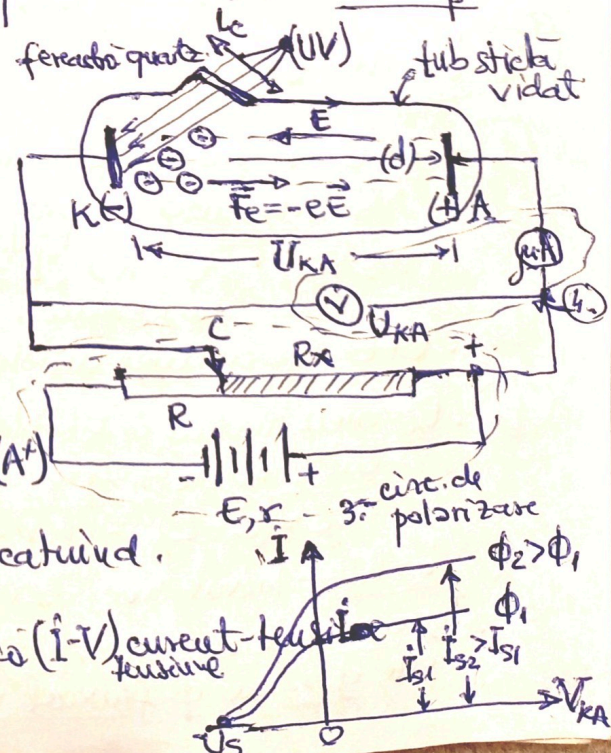 Lc
(UV)
fereastră quartz
tub sticlă
vidat
E
(d)
K(-)
Fe=-eE
(+) A
UKA
μA
V
UKA
4.
C
Rx
+
R
(A+)
-
+
E, r - 3.- circ. de
polarizare
I
ϕ2>ϕ1
ϕ1
(I-V) curent-tensiune
tensiune
IS1
IS2>IS1
US
O
VKA